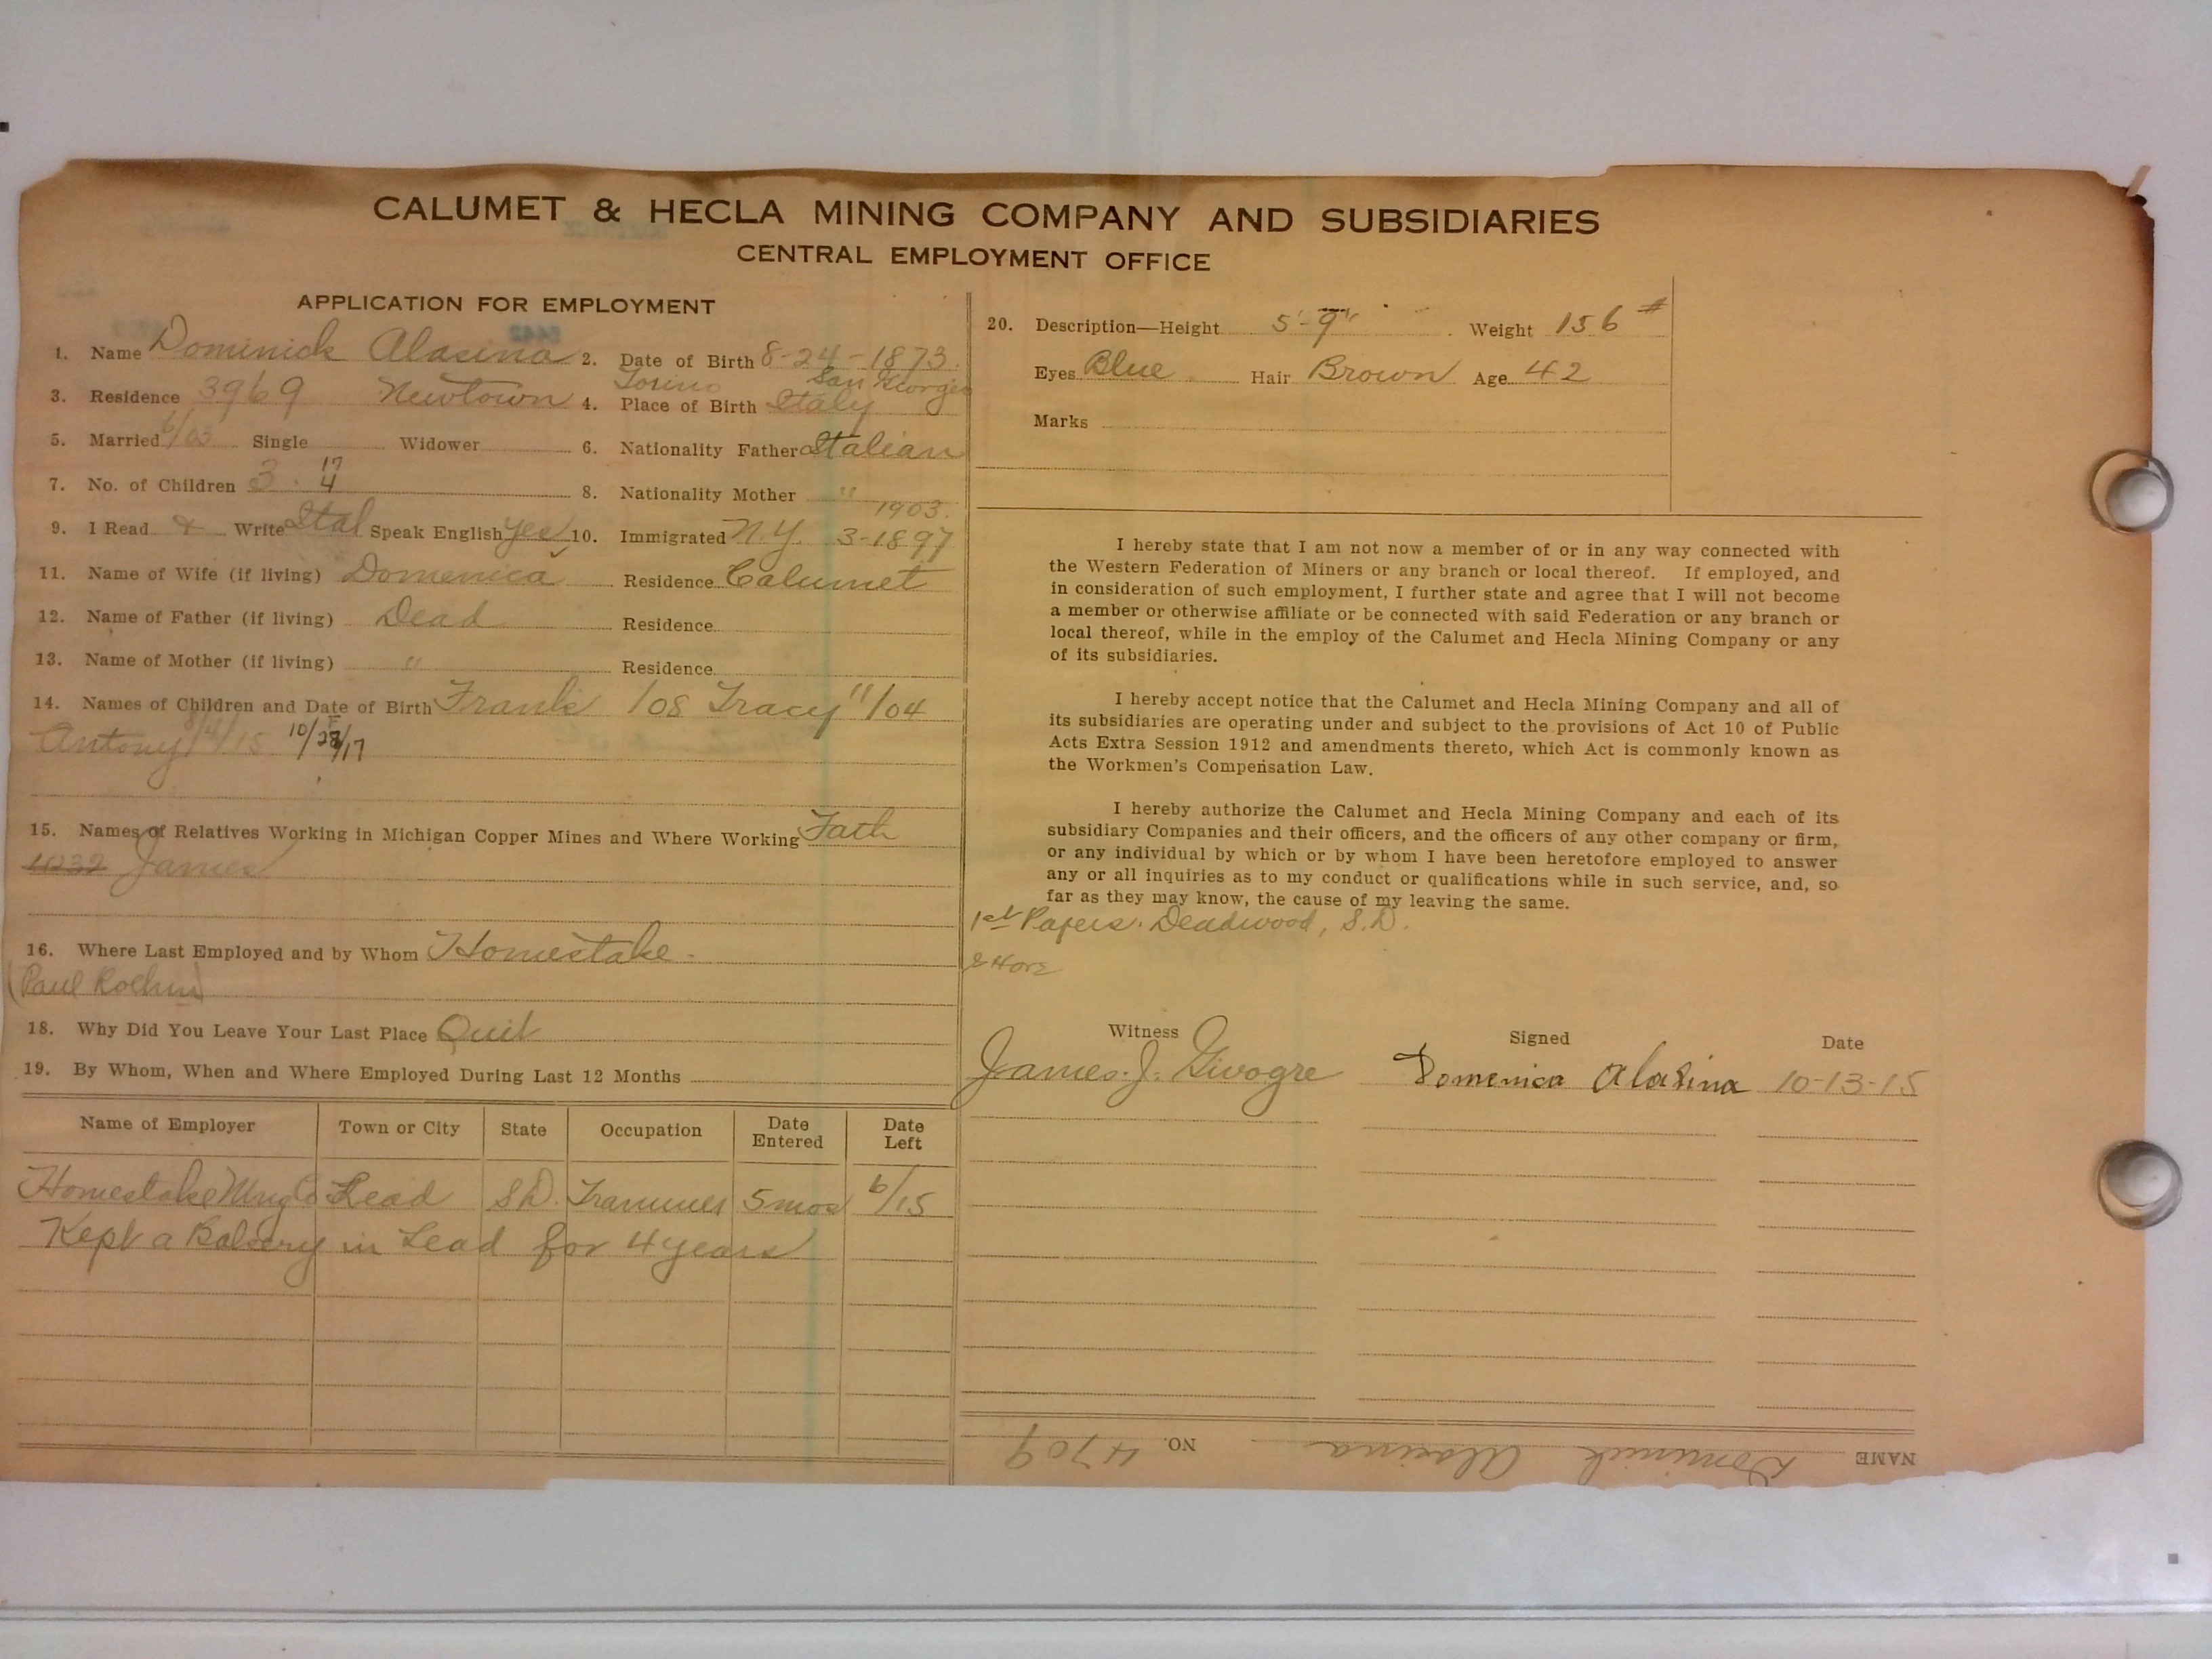 CALUMET & HECLA MINING COMPANY AND SUBSIDIARIES
CENTRAL EMPLOYMENT OFFICE
APPLICATION FOR EMPLOYMENT
1. Name Dominick Alasina 2. Date of Birth 8-24-1873.
Torino San Giorgio
3. Residence 3969 Newtown 4. Place of Birth Italy
5. Married 6/03 Single Widower 6. Nationality Father Italian
7. No. of Children 3. 17 4 8. Nationality Mother "
1903.
9. I Read & Write Ital Speak English yes 10. Immigrated N.Y. 3-1897
11. Name of Wife (if living) Domenica Residence Calumet
12. Name of Father (if living) Dead Residence
13. Name of Mother (if living) " Residence
14. Names of Children and Date of Birth Frank /08 Tracy 11/04
Antony 15 10/28/17
15. Names of Relatives Working in Michigan Copper Mines and Where Working Fath
James
16. Where Last Employed and by Whom Homestake.
(Paul Rochm)
18. Why Did You Leave Your Last Place Quit
19. By Whom, When and Where Employed During Last 12 Months
Name of Employer Town or City State Occupation Date Entered Date Left
Homestake Mng Co Lead S.D. Trammer 5 mos 6/15
Kept a Bakery in Lead for 4 years
20. Description—Height 5'-9" Weight 156 #
Eyes Blue Hair Brown Age 42
Marks
I hereby state that I am not now a member of or in any way connected with
the Western Federation of Miners or any branch or local thereof. If employed, and
in consideration of such employment, I further state and agree that I will not become
a member or otherwise affiliate or be connected with said Federation or any branch or
local thereof, while in the employ of the Calumet and Hecla Mining Company or any
of its subsidiaries.
I hereby accept notice that the Calumet and Hecla Mining Company and all of
its subsidiaries are operating under and subject to the provisions of Act 10 of Public
Acts Extra Session 1912 and amendments thereto, which Act is commonly known as
the Workmen's Compensation Law.
I hereby authorize the Calumet and Hecla Mining Company and each of its
subsidiary Companies and their officers, and the officers of any other company or firm,
or any individual by which or by whom I have been heretofore employed to answer
any or all inquiries as to my conduct or qualifications while in such service, and, so
far as they may know, the cause of my leaving the same.
1st Papers. Deadwood, S.D.
Witness Signed Date
James. J. Givogre Domenica Alasina 10-13-15
NAME Dominick Alasina NO. 4709